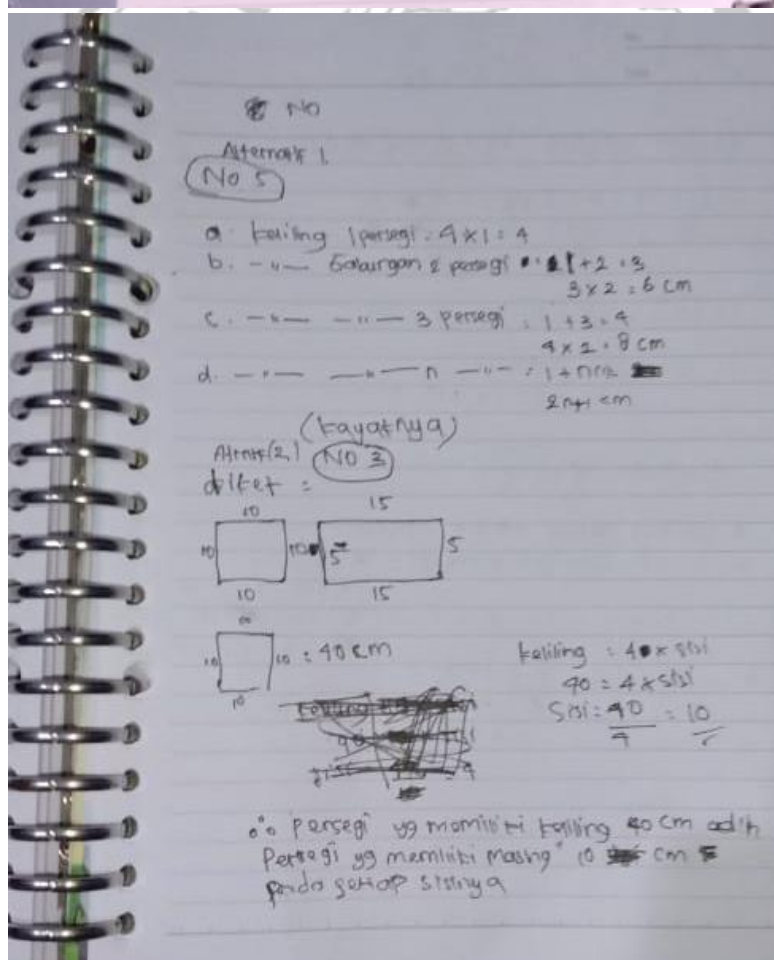 No
Alternatif 1
No 5
a. keliling 1 persegi = 4 x 1 = 4
b. -"- Gabungan 2 persegi = 1 + 2 = 3
3 x 2 = 6 cm
c. -"- -"- 3 persegi = 1 + 3 = 4
4 x 2 = 8 cm
d. -"- -"- n -"- = 1 + n
cm
(kayaknya)
Alternatif (2) No 3
diket =
10 15
10 10 5 5
10 15
10
10 10 = 40 cm
10
keliling = 4 x sisi
40 = 4 x sisi
Sisi = 40/4 = 10
∴ persegi yg memiliki keliling 40 cm
Persegi yg memiliki masing" 10 cm
pada setiap sisinya